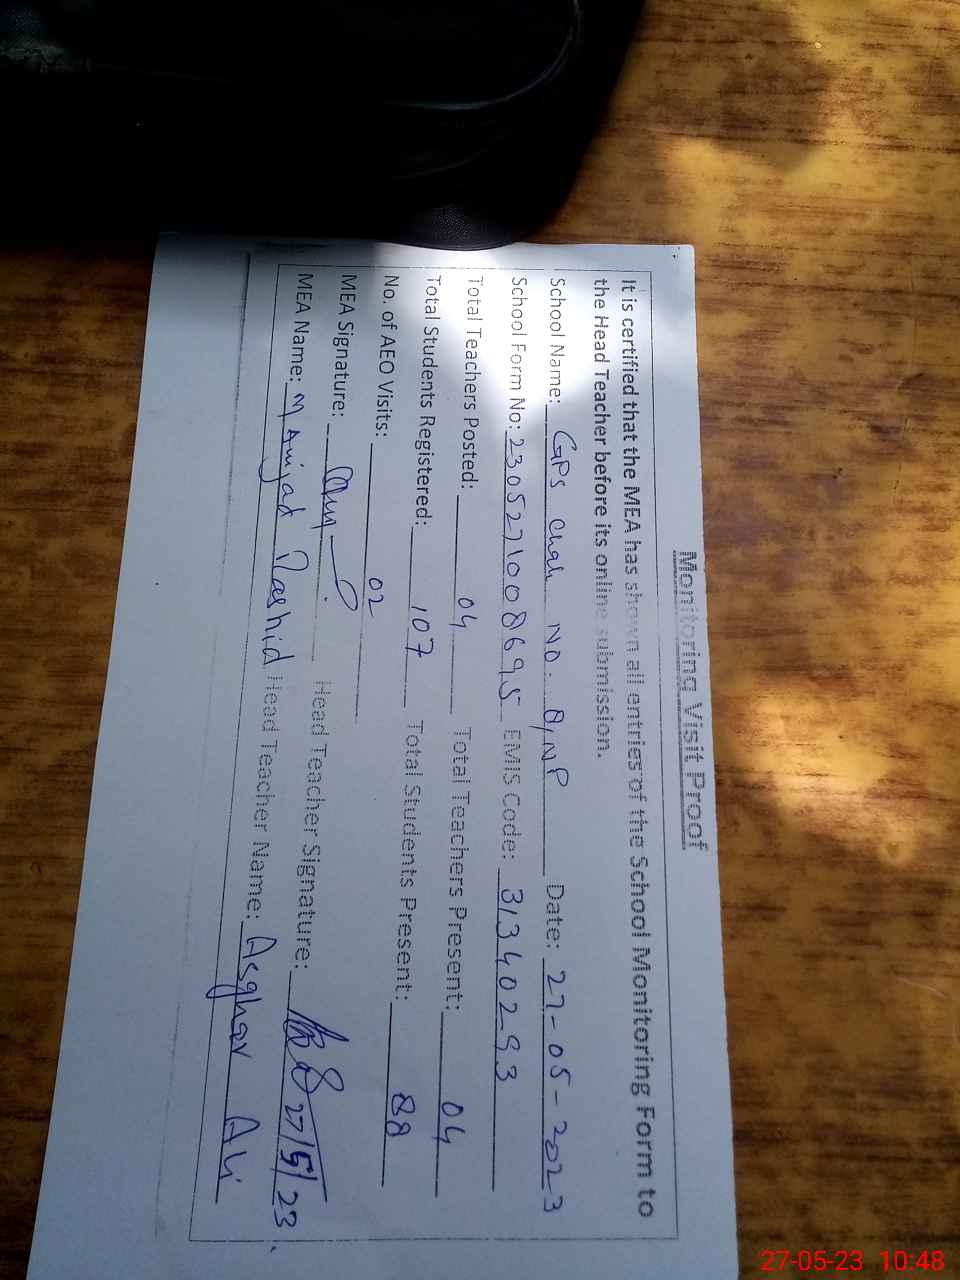 Monitoring Visit Proof
It is certified that the MEA has shown all entries of the School Monitoring Form to
the Head Teacher before its online submission.
School Name: GPS Chak No. 8/NP Date: 27-05-2023
School Form No: 2305271008695 EMIS Code: 31340293
Total Teachers Posted: 04 Total Teachers Present: 04
Total Students Registered: 107 Total Students Present: 88
No. of AEO Visits: 02
MEA Signature: Head Teacher Signature: 27/5/23
MEA Name: M Amjad Rashid Head Teacher Name: Asghar Ali
27-05-23 10:48